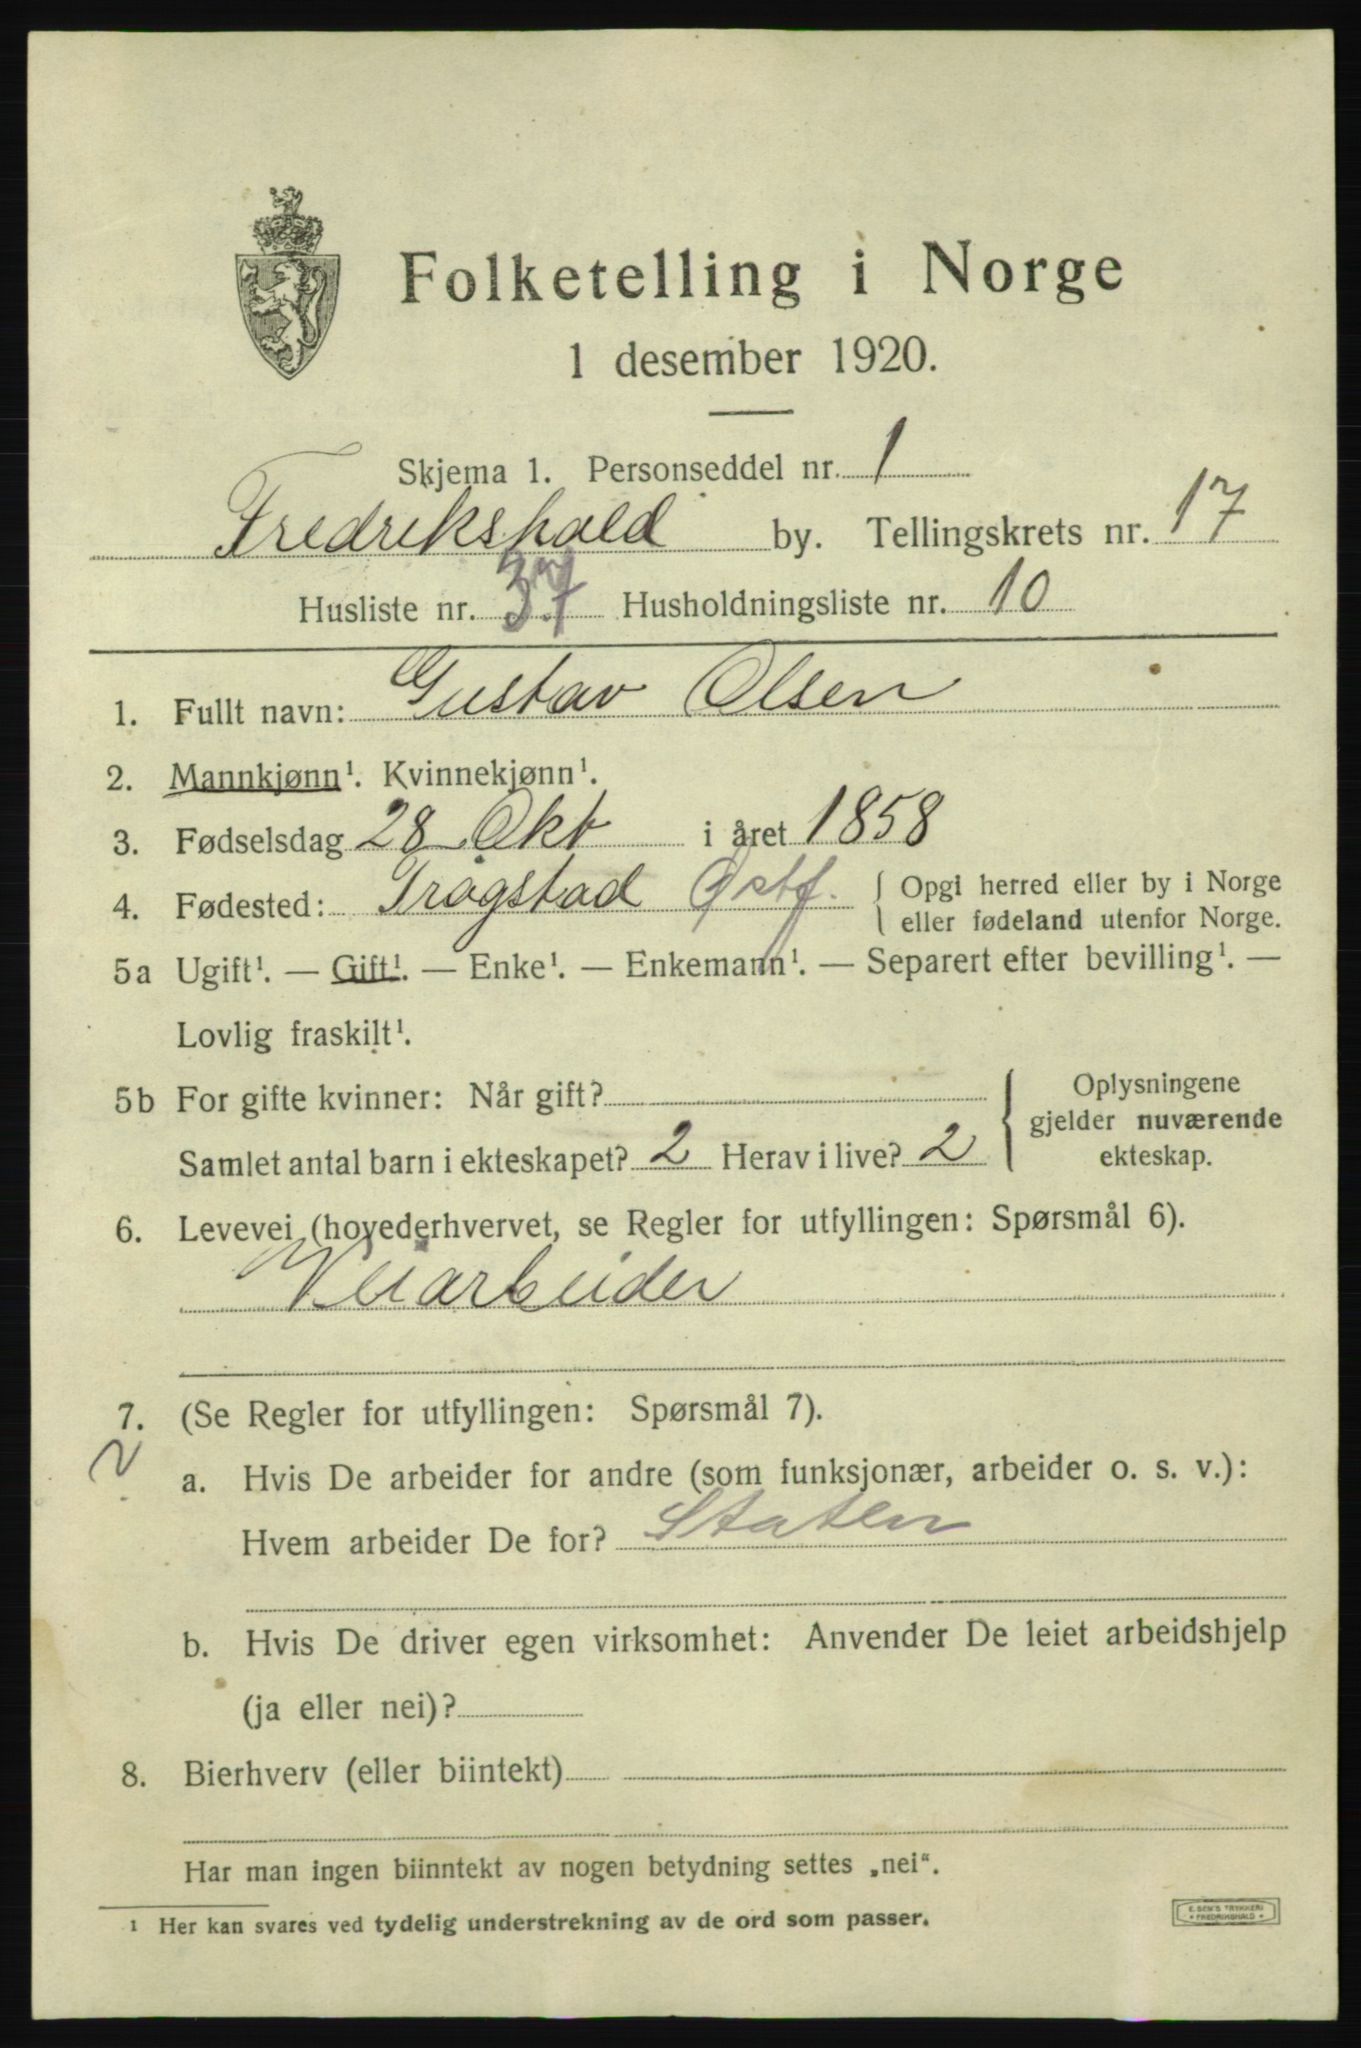 Folketelling i Norge
1 desember 1920.
Skjema 1. Personseddel nr. 1
Fredrikshald by. Tellingskrets nr. 17
Husliste nr. 37 Husholdningsliste nr. 10
1. Fullt navn: Gustav Olsen
2. Mannkjønn¹. Kvinnekjønn¹.
3. Fødselsdag 28 Okt i året 1858
4. Fødested: Trøgstad Østf. { Opgi herred eller by i Norge
eller fødeland utenfor Norge.
5a Ugift¹. — Gift¹. — Enke¹. — Enkemann¹. — Separert efter bevilling¹. —
Lovlig fraskilt¹.
5b For gifte kvinner: Når gift?
Samlet antal barn i ekteskapet? 2 Herav i live? 2
Oplysningene
gjelder nuværende
ekteskap.
6. Levevei (hovederhvervet, se Regler for utfyllingen: Spørsmål 6).
Veiarbeider
7. (Se Regler for utfyllingen: Spørsmål 7).
a. Hvis De arbeider for andre (som funksjonær, arbeider o. s. v.):
Hvem arbeider De for? Staten
b. Hvis De driver egen virksomhet: Anvender De leiet arbeidshjelp
(ja eller nei)?
8. Bierhverv (eller biintekt)
Har man ingen biinntekt av nogen betydning settes „nei“.
¹ Her kan svares ved tydelig understrekning av de ord som passer.
E. SEM'S TRYKKERI
• FREDRIKSHALD •